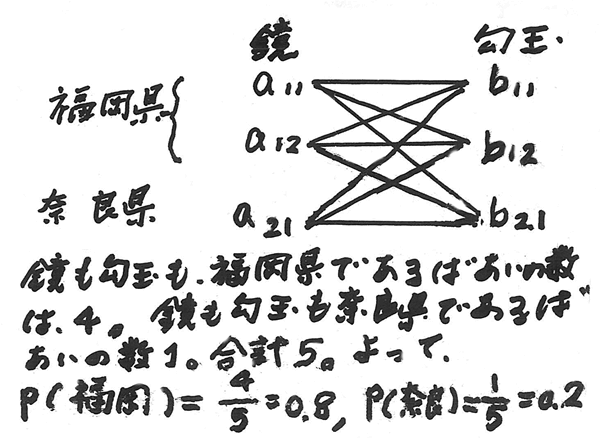 鏡 勾玉
福岡県
a11 b11
a12 b12
奈良県
a21 b21
鏡も勾玉も、福岡県であるばあいの数
は、4。鏡も勾玉も奈良県であるば
あいの数1。合計5。よって、
P(福岡)=4/5=0.8, P(奈良)=1/5=0.2